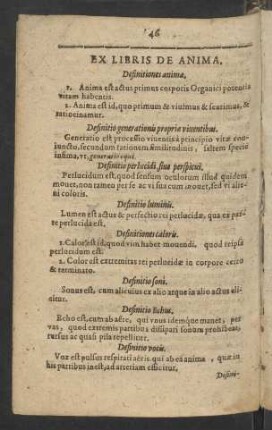 46
EX LIBRIS DE ANIMA.
Definitiones animæ.
1. Anima est actus primus corporis Organici potentia
vitam habentis.
2. Anima est id, quo primum & viuimus & sentimus, &
ratiocinamur.
Definitio generationis propriæ viuentibus.
Generatio est processio viuentis à principio viuo con-
iuncto, secundum rationem similitudinis, saltem speciei
infimæ, vt, generatio equi.
Definitio perlucidi siue perspicui.
Perlucidum est, quod sensum oculorum illud quidem
mouet, non tamen per se ac vi sua eum mouet, sed vi alieni
coloris.
Definitio luminis.
Lumen est actus & perfectio rei perlucidæ, qua ex par-
te perlucida est.
Definitiones coloris.
1. Color est id, quod vim habet mouendi, quod reipsa
perlucidum est.
2. Color est extremitas rei perlucidæ in corpore certo
& terminato.
Definitio soni.
Sonus est, cum alicuius ex alio atque in alio actus eli-
citur.
Definitio Echus.
Echo est, cum ab aëre, qui vnus idemque manet, per
vas, quod extremis partibus dissipari sonum prohibeat,
rursus ac quasi pila repellitur.
Definitio vocis.
Vox est pulsus respirati aëris qui ab ea anima, quæ in
his partibus inest, ad arteriam efficitur.
Defini-